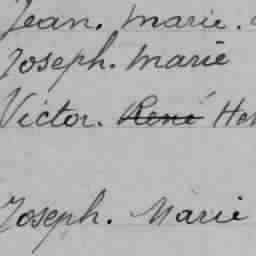 Jean. Marie.
Joseph. Marie
Victor. René
Joseph. Marie